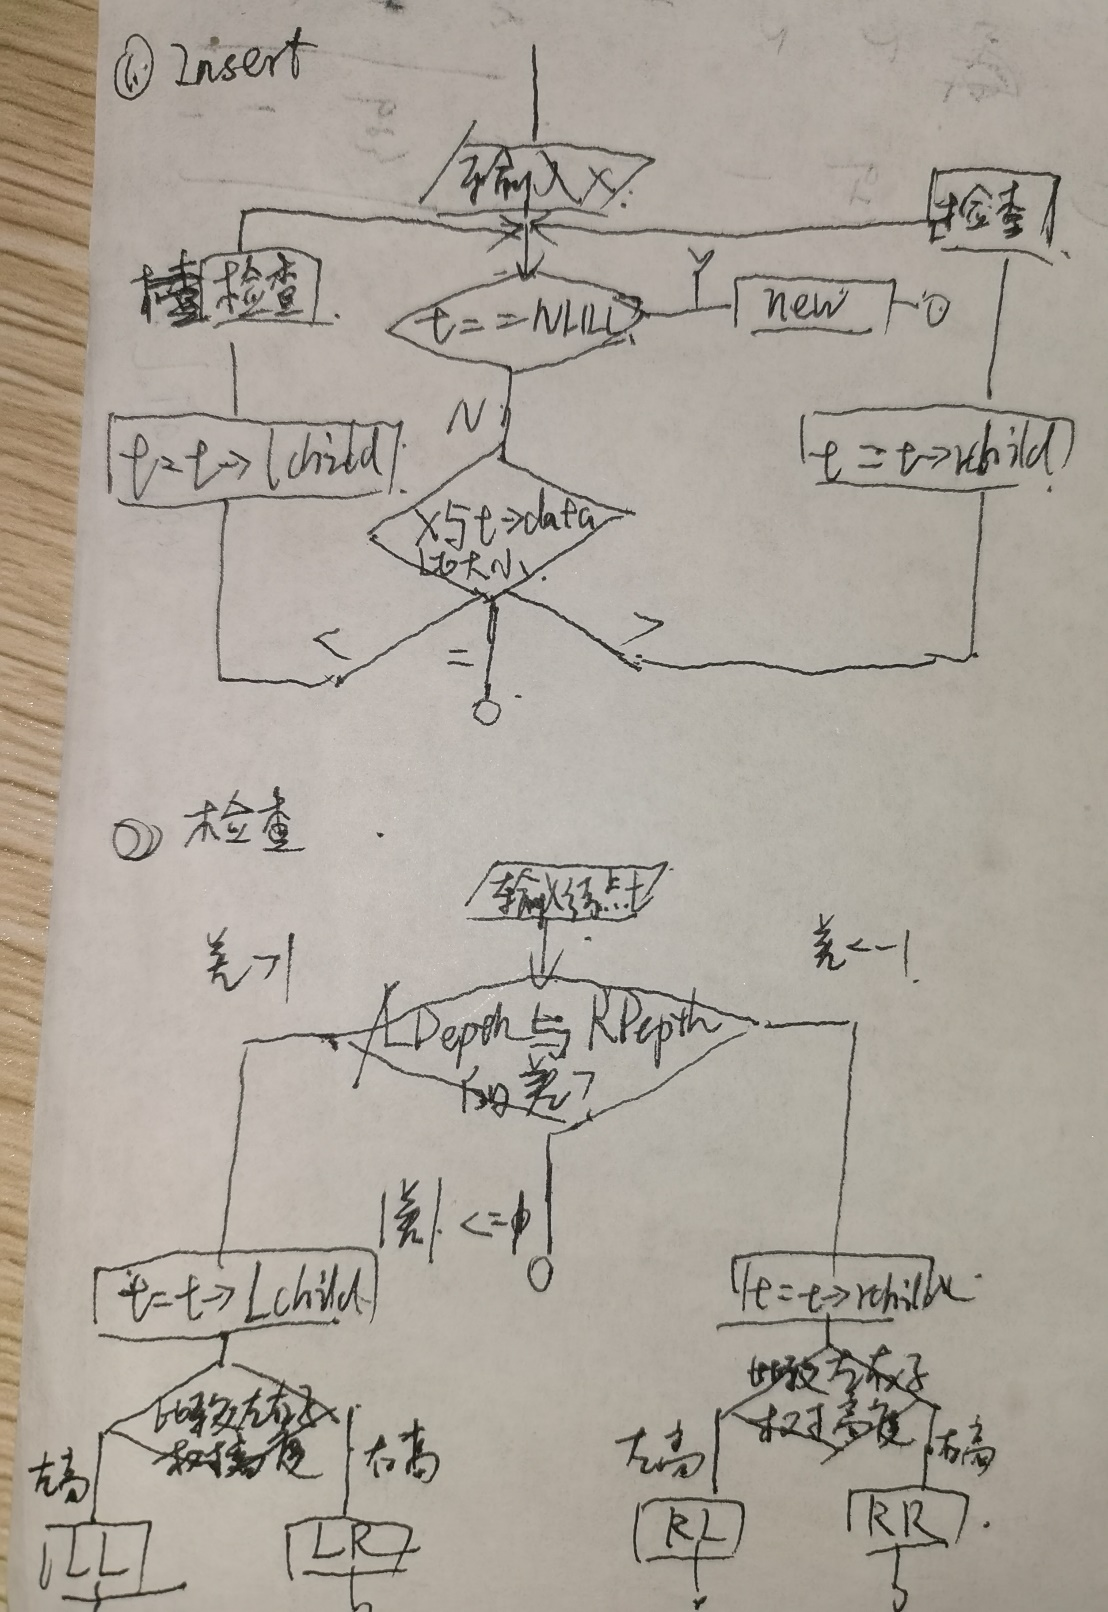 ① Insert
输入x
检查
检查
t==NULL
Y
new
N
t=t→lchild
t=t→rchild
x与t→data
比大小
<
=
>
② 检查
输入结点t
差>1
差<-1
LDepth与RDepth
的差?
|差|<=1
t=t→Lchild
t=t→rchild
比较左右子
树高度
比较左右子
树高度
左高
右高
左高
右高
LL
LR
RL
RR